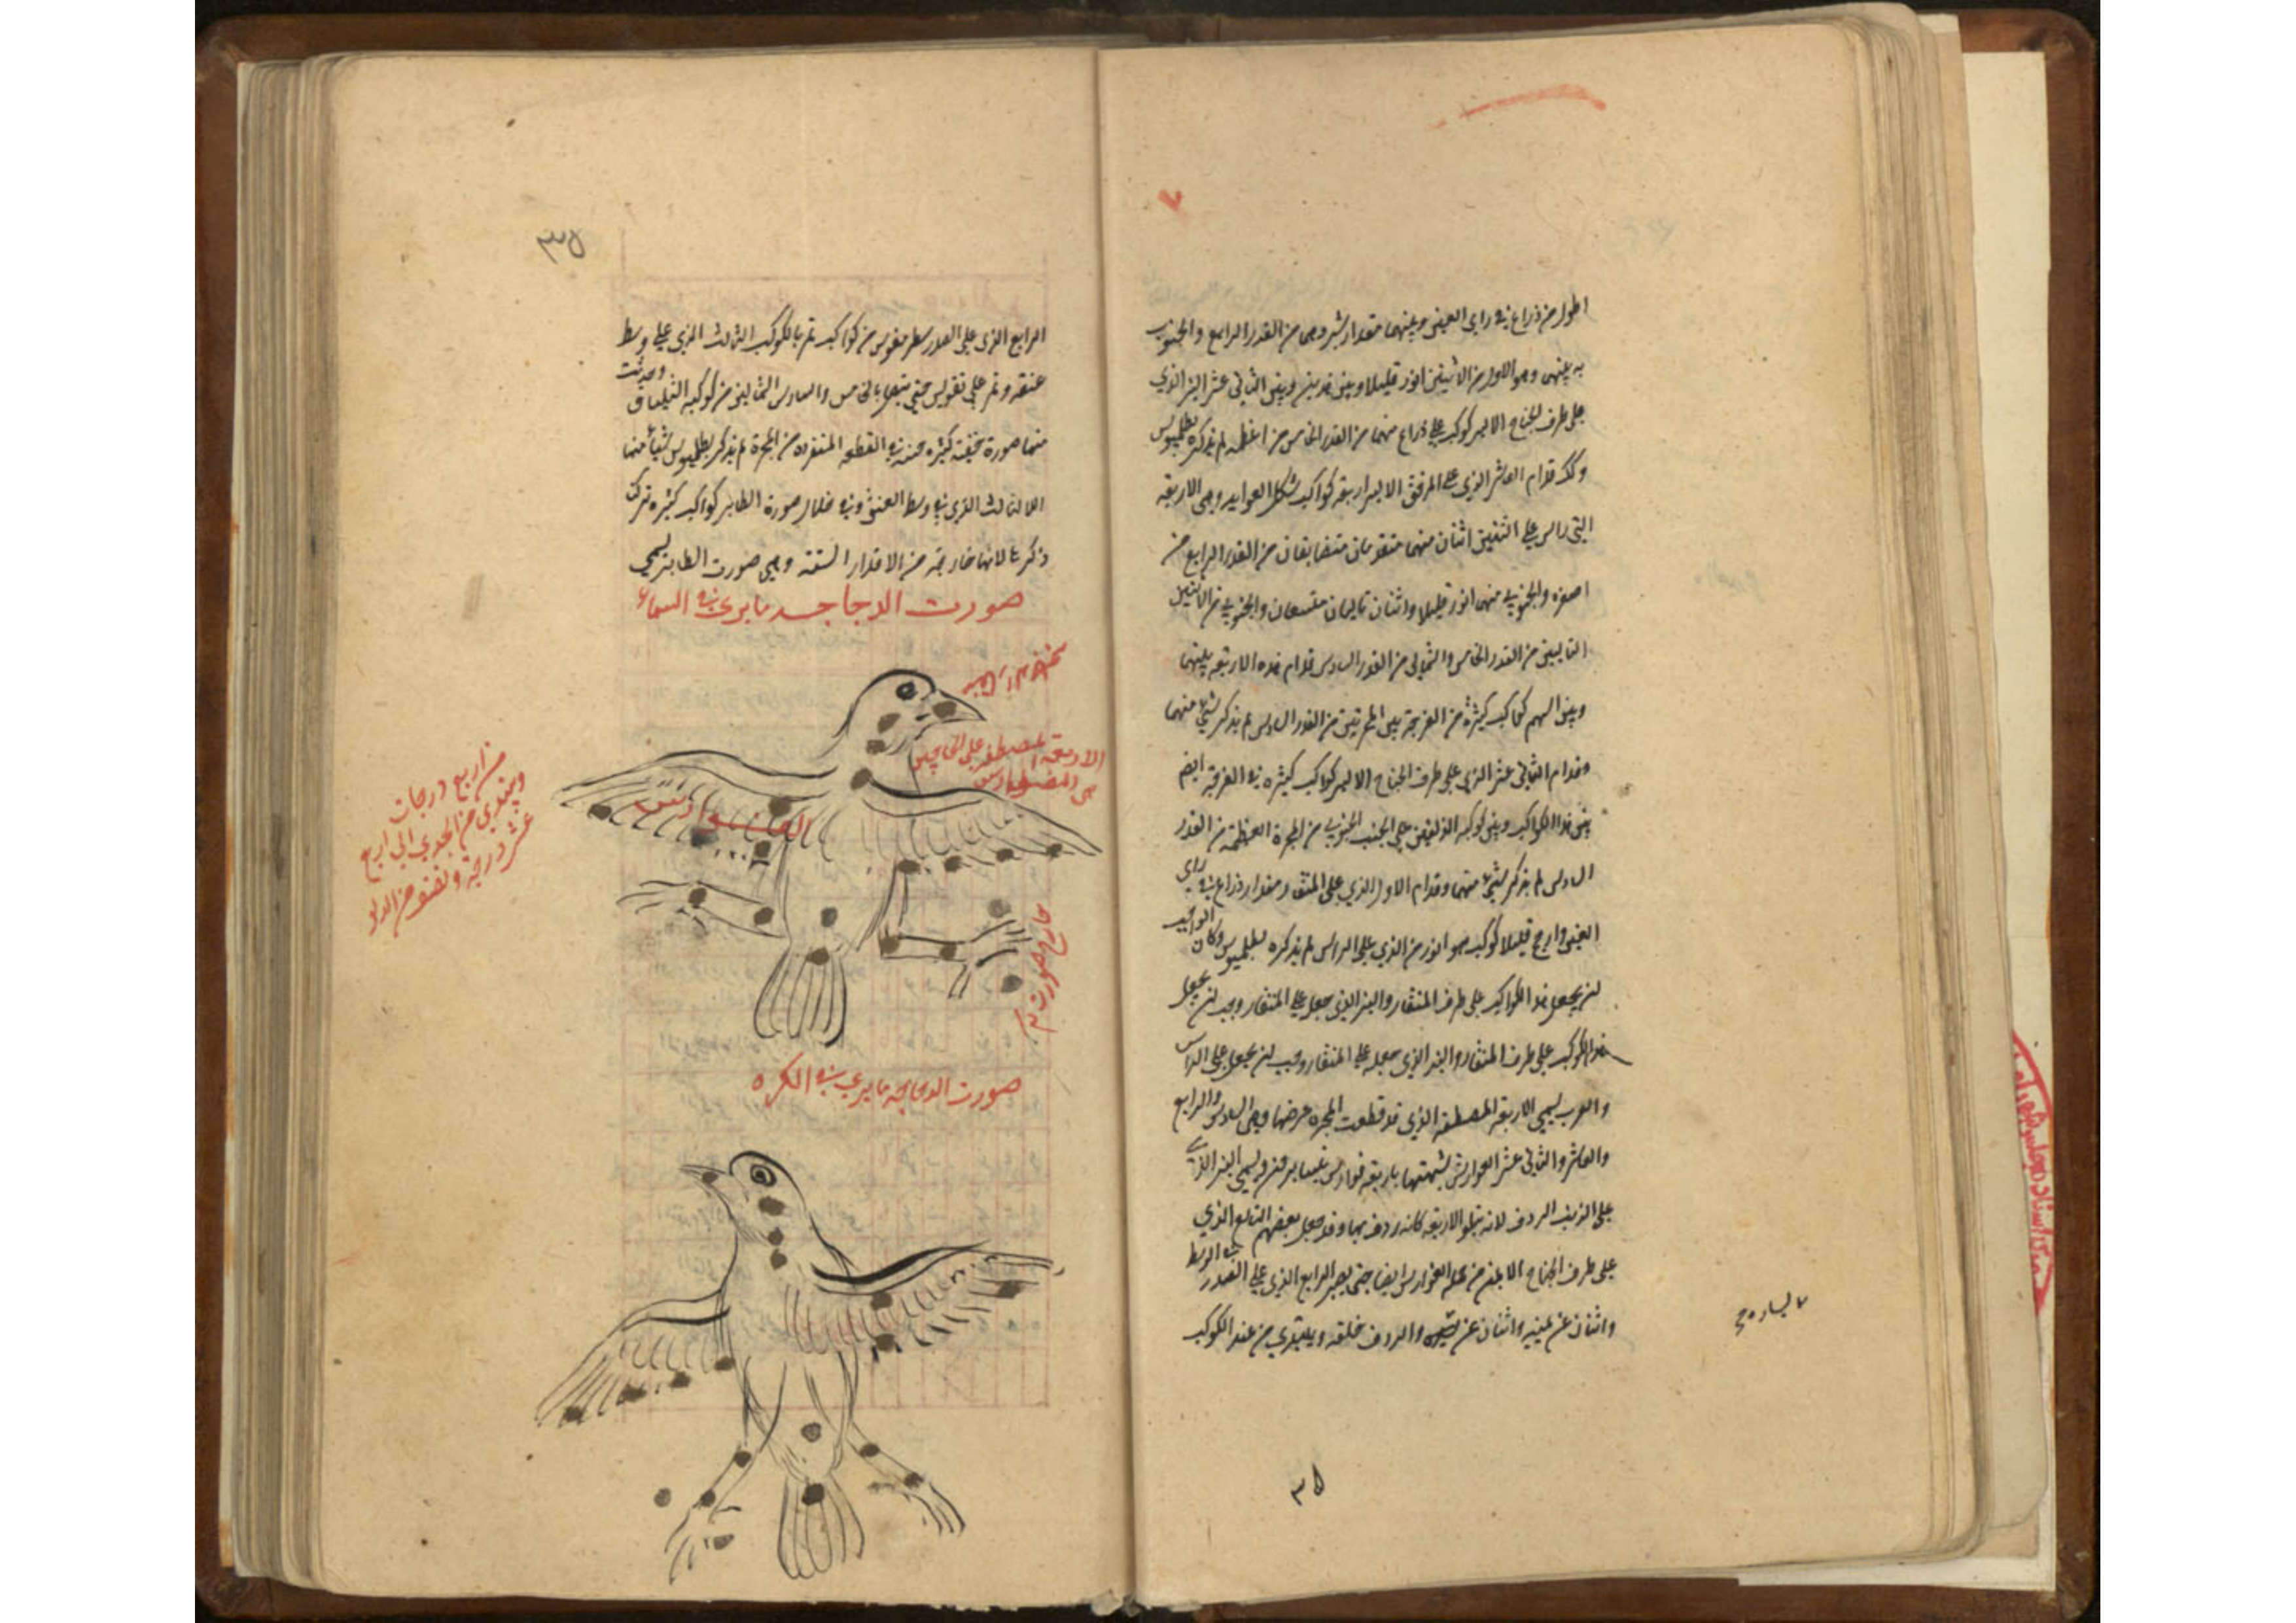 اطول من ذراع في راي العين وبينهما مقدار شبر وهما من القدر الرابع والجنوبي
منهما وهو الاول من الاثنين انور قليلا وبين هذين وبين الثاني عشر النير الذي
على طرف الجناح الايسر كوكب على ذراع منهما من القدر الخامس من اعظمه لم يذكره بطلميوس
وكك قدام العاشر الذي على المرفق الايسر اربعة كواكب شكل العوايد وهي الاربعة
التي راس على التنين اثنان منهما متقدمان متضايقان من القدر الرابع من
اصغره والجنوبي منهما انور قليلا واثنان تاليان متسعان والجنوبي من الاثنين
التاليين من القدر الخامس والشمالي من القدر السادس قدام هذه الاربعة بينها
وبين السهم كواكب كثيرة من الفرجة بين المجرتين من القدر السادس لم يذكر شيئ منهما
وقدام الثاني عشر الذي على طرف الجناح الايسر كواكب كثيره في الفرجة ايضا
بين هذا الكواكب وبين كوكبه الدلفين على الجنب الجنوبي من المجرة العظمة من القدر
السادس لم يذكر شيئ منهما وقدام الاول الذي على المنقار مقدار ذراع في راي
العين وارجح قليلا كوكب هو انور من الذي على الراس لم يذكره بطلميوس وكان الواجب
لن يجعل هذا الكواكب على طرف المنقار والنير الذي جعل على المنقار وجب لن يجعل
هذا الكوكب على طرف المنقار والنير الذي جعله على المنقار وجب لن يجعل على الراس
والعرب يسمي الاربعة المصطفة الذي قد قطعت المجرة عرضها وهي السادس والرابع
والعاشر والثاني عشر الفوارس شبهتها باربعة فوارس يتسايرون ويسمي النير الذي
على الذنب الردف لانه يتلو الاربعة كانه ردف بها وقد جعل بعضهم التاسع الذي
على طرف الجناح الايمن من جملة الفوارس ايضا حتى يصير الرابع الذي على الصدر في الوسط
واثنان عن يمينه واثنان عن يساره والردف خلفه ويبتدي من عند الكوكب
يساره
٣٥
٣٥
الرابع الذي على الصدر سطر مقوس من كواكب تمر بالكوكب الثالث الذي على وسط
عنقه وتمر على تقويس حتي يتصل بالخامس والسادس الشماليين من كوكبه الشلياق وحدثت
منها صورة خفية كثيره حسنه في القطعه المنفرده من المجرة لم يذكر بطلميوس شيئا منها
الا الثالث الذي في وسط العنق وفي خلال صورة الطاير كواكب كثيره تركت
ذكرها لانها خارجة من الاقدار الستة وهي صورت الطاير يسمي
صورت الدجاجه ما يرى في السماء
الاربعة المصطفة على الجناحين
هي الفوارس
الفوارس
خارج صورت
من اربع درجات
ويبتدي من الجدي الى اربع
عشر درجة ونصف من الدلو
صورت الدجاجه ما يري في الكره